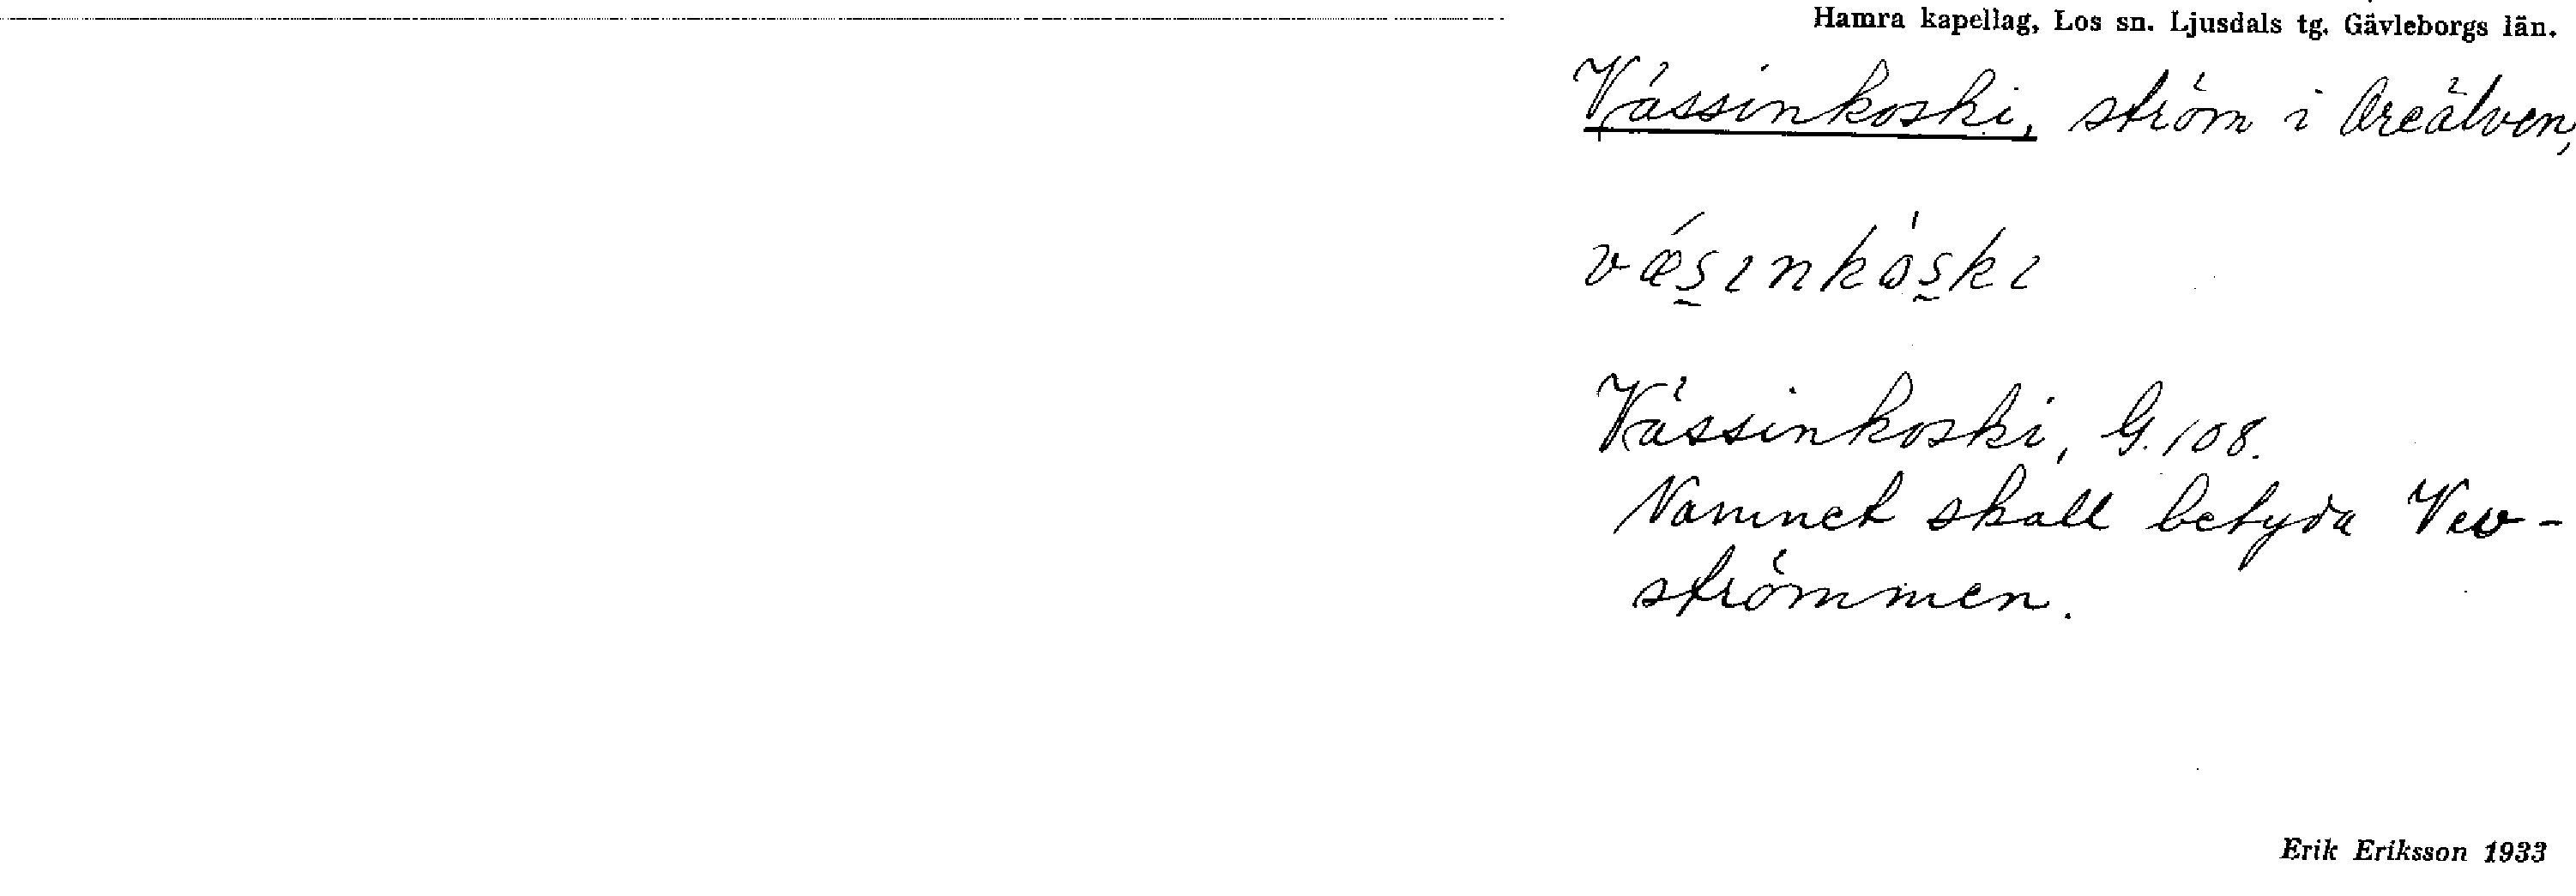 Hamra kapellag, Los sn. Ljusdals tg. Gävleborgs län.
Vässinkoski, ström i Oreälven,
vǽsınkòskı
Vässinkoski, G. 108.
Namnet skall betyda Vev-
strömmen.
Erik Eriksson 1933